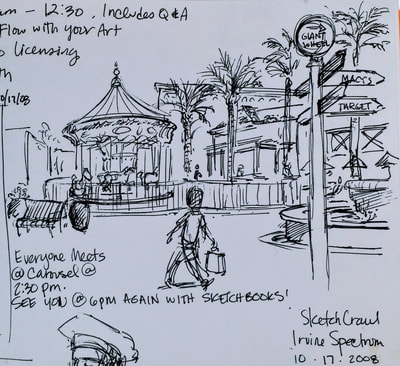 am – 12:30, Includes Q&A
Flow with your Art
o Licensing
th
10/17/08
GIANT
WHEEL
MACY'S
TARGET
Everyone Meets
@ Carousel @
2:30 pm.
SEE YOU @ 6PM AGAIN WITH SKETCHBOOKS!
SketchCrawl
Irvine Spectrum
10.17.2008